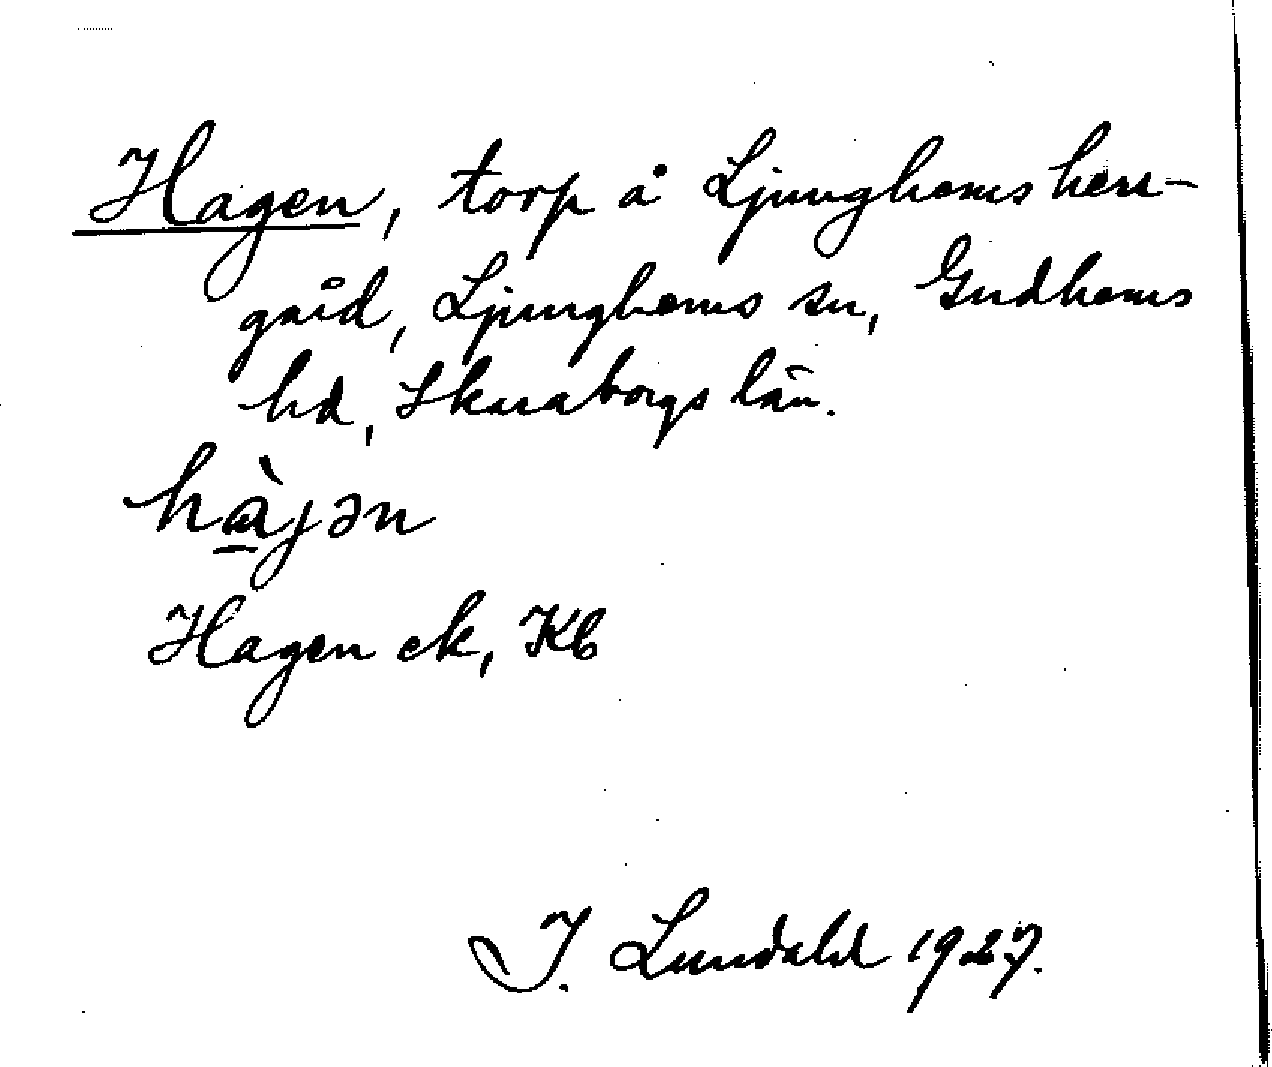 Hagen, torp å Ljunghems herr-
gård, Ljunghems sn, Gudhems
hd, Skaraborgs län.
hàjən
Hagen ek, Kb
I. Lundahl 1927.